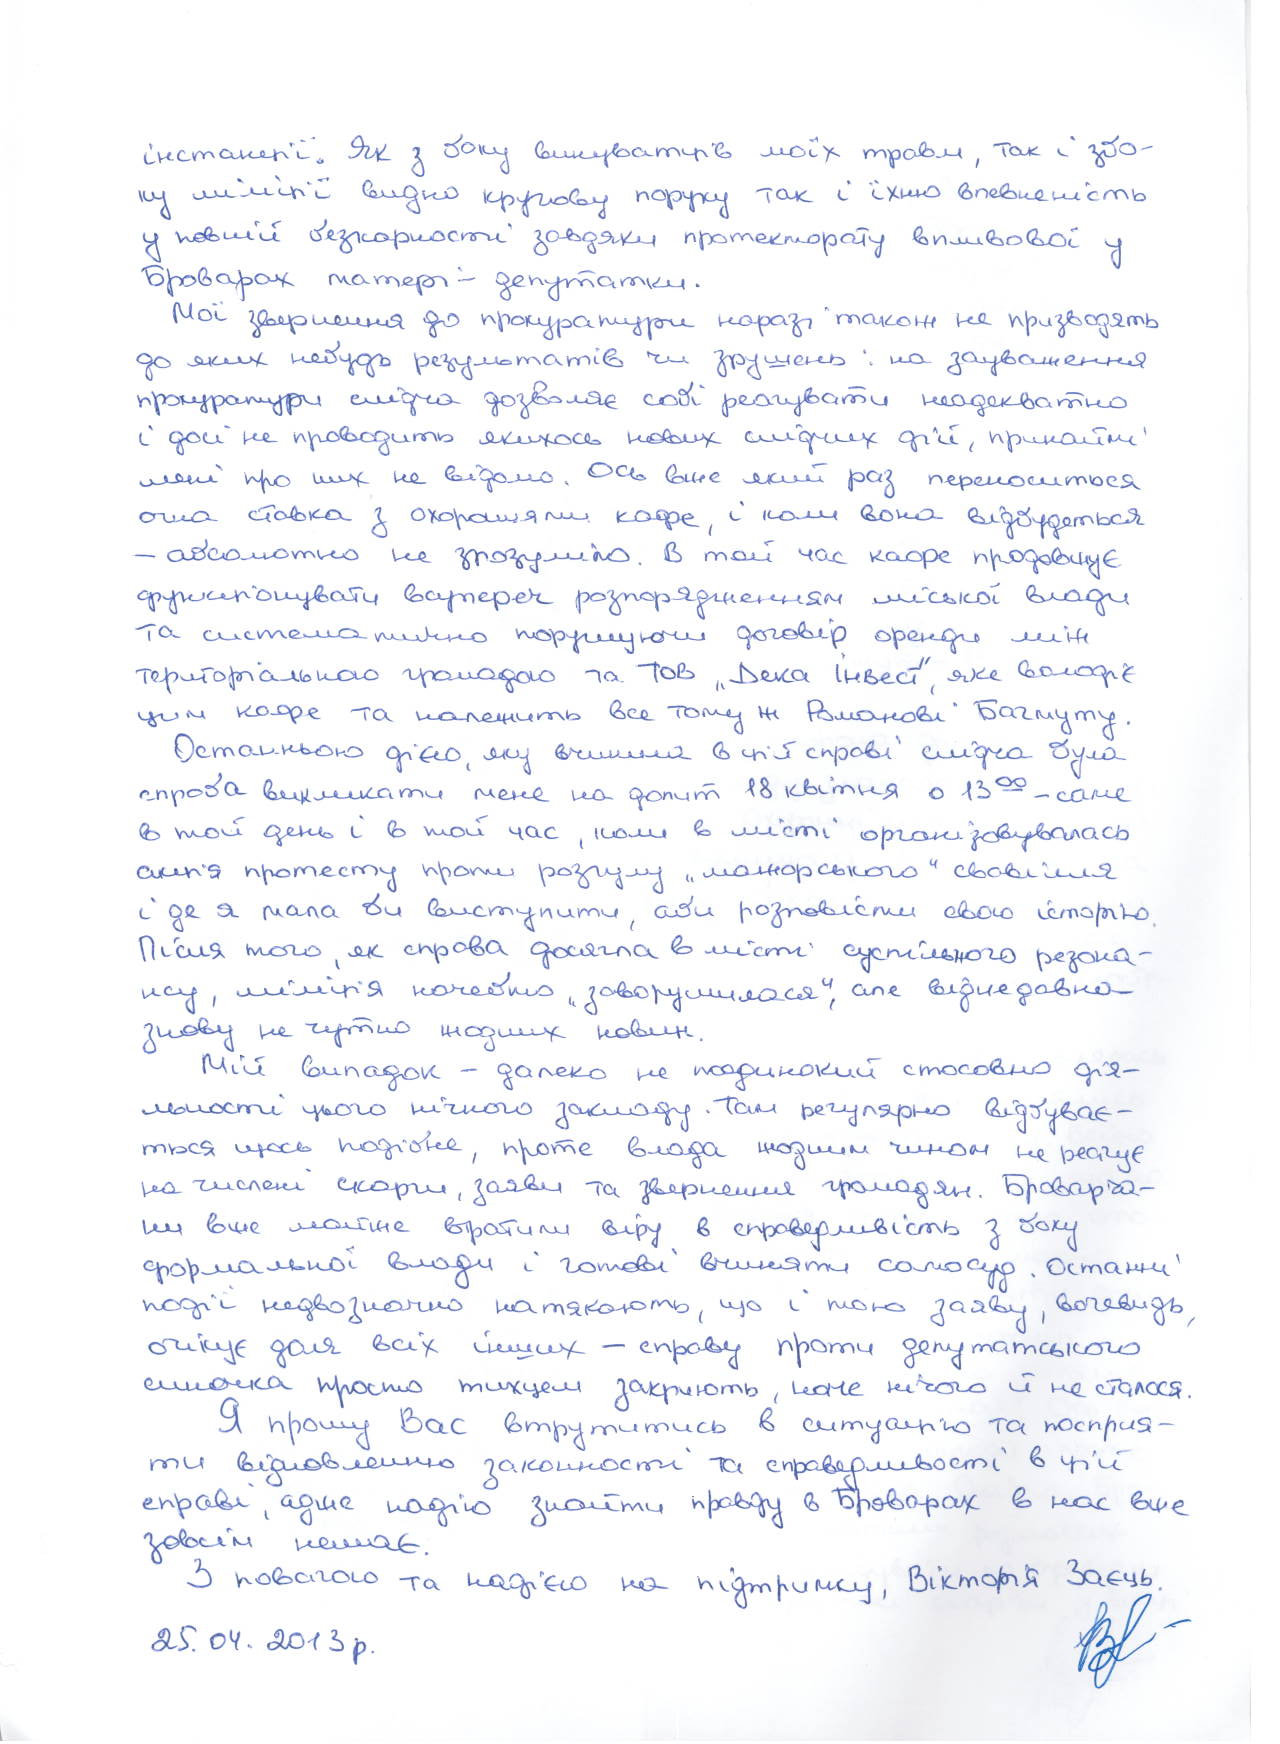 інстанції. Як з боку винуватців моїх травм, так і збо-
ку міліції видно кругову поруку так і їхню впевненість
у повній безкарності завдяки протекторату впливової у
Броварах матері-депутатки.
Мої звернення до прокуратури наразі також не призводять
до яких небудь результатів чи зрушень: на зауваження
прокуратури слідча дозволяє собі реагувати неадекватно
і досі не проводить якихось нових слідчих дій, принаймні
мені про них не відомо. Ось вже який раз переноситься
очна ставка з охоронцями кафе, і коли вона відбудеться
– абсолютно не зрозуміло. В той час кафе продовжує
функціонувати всупереч розпорядженням міської влади
та систематично порушуючи договір оренди між
територіальною громадою та ТОВ „Дека Інвест", яке володіє
цим кафе та належить все тому ж Романові Багмуту.
Останньою дією, яку вчинила в цій справі слідча була
спроба викликати мене на допит 18 квітня о 13⁰⁰ – саме
в той день і в той час, коли в місті організовувалась
акція протесту проти розгулу „мажорського" свавілля
і де я мала би виступити, аби розповісти свою історію.
Після того, як справа досягла в місті суспільного резона-
нсу, міліція начебто „заворушилася", але віднедавна
знову не чутно жодних новин.
Мій випадок – далеко не поодинокий стосовно дія-
льності цього нічного закладу. Там регулярно відбуває-
ться щось подібне, проте влада жодним чином не реагує
на числені скарги, заяви та звернення громадян. Броварча-
ни вже майже втратили віру в справедливість з боку
формальної влади і готові вчиняти самосуд. Останні
події недвозначно натякають, що і мою заяву, вочевидь,
очікує доля всіх інших – справу проти депутатського
синочка просто тихцем закриють, наче нічого й не сталося.
Я прошу Вас втрутитись в ситуацію та посприя-
ти відновленню законності та справедливості в цій
справі, адже надію знайти правду в Броварах в нас вже
зовсім немає.
З повагою та надією на підтримку, Вікторія Заєць.
25.04.2013р.